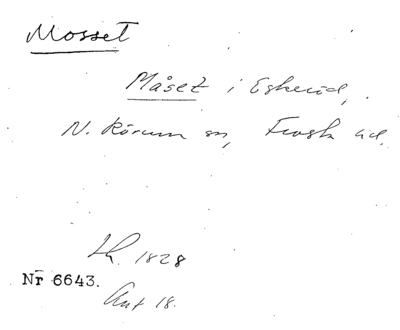 Mosset
Måset i Eskeröd,
N. Rörum sn, Frosta hd.
Lh. 1828
Nr 6643.
Ant 18.